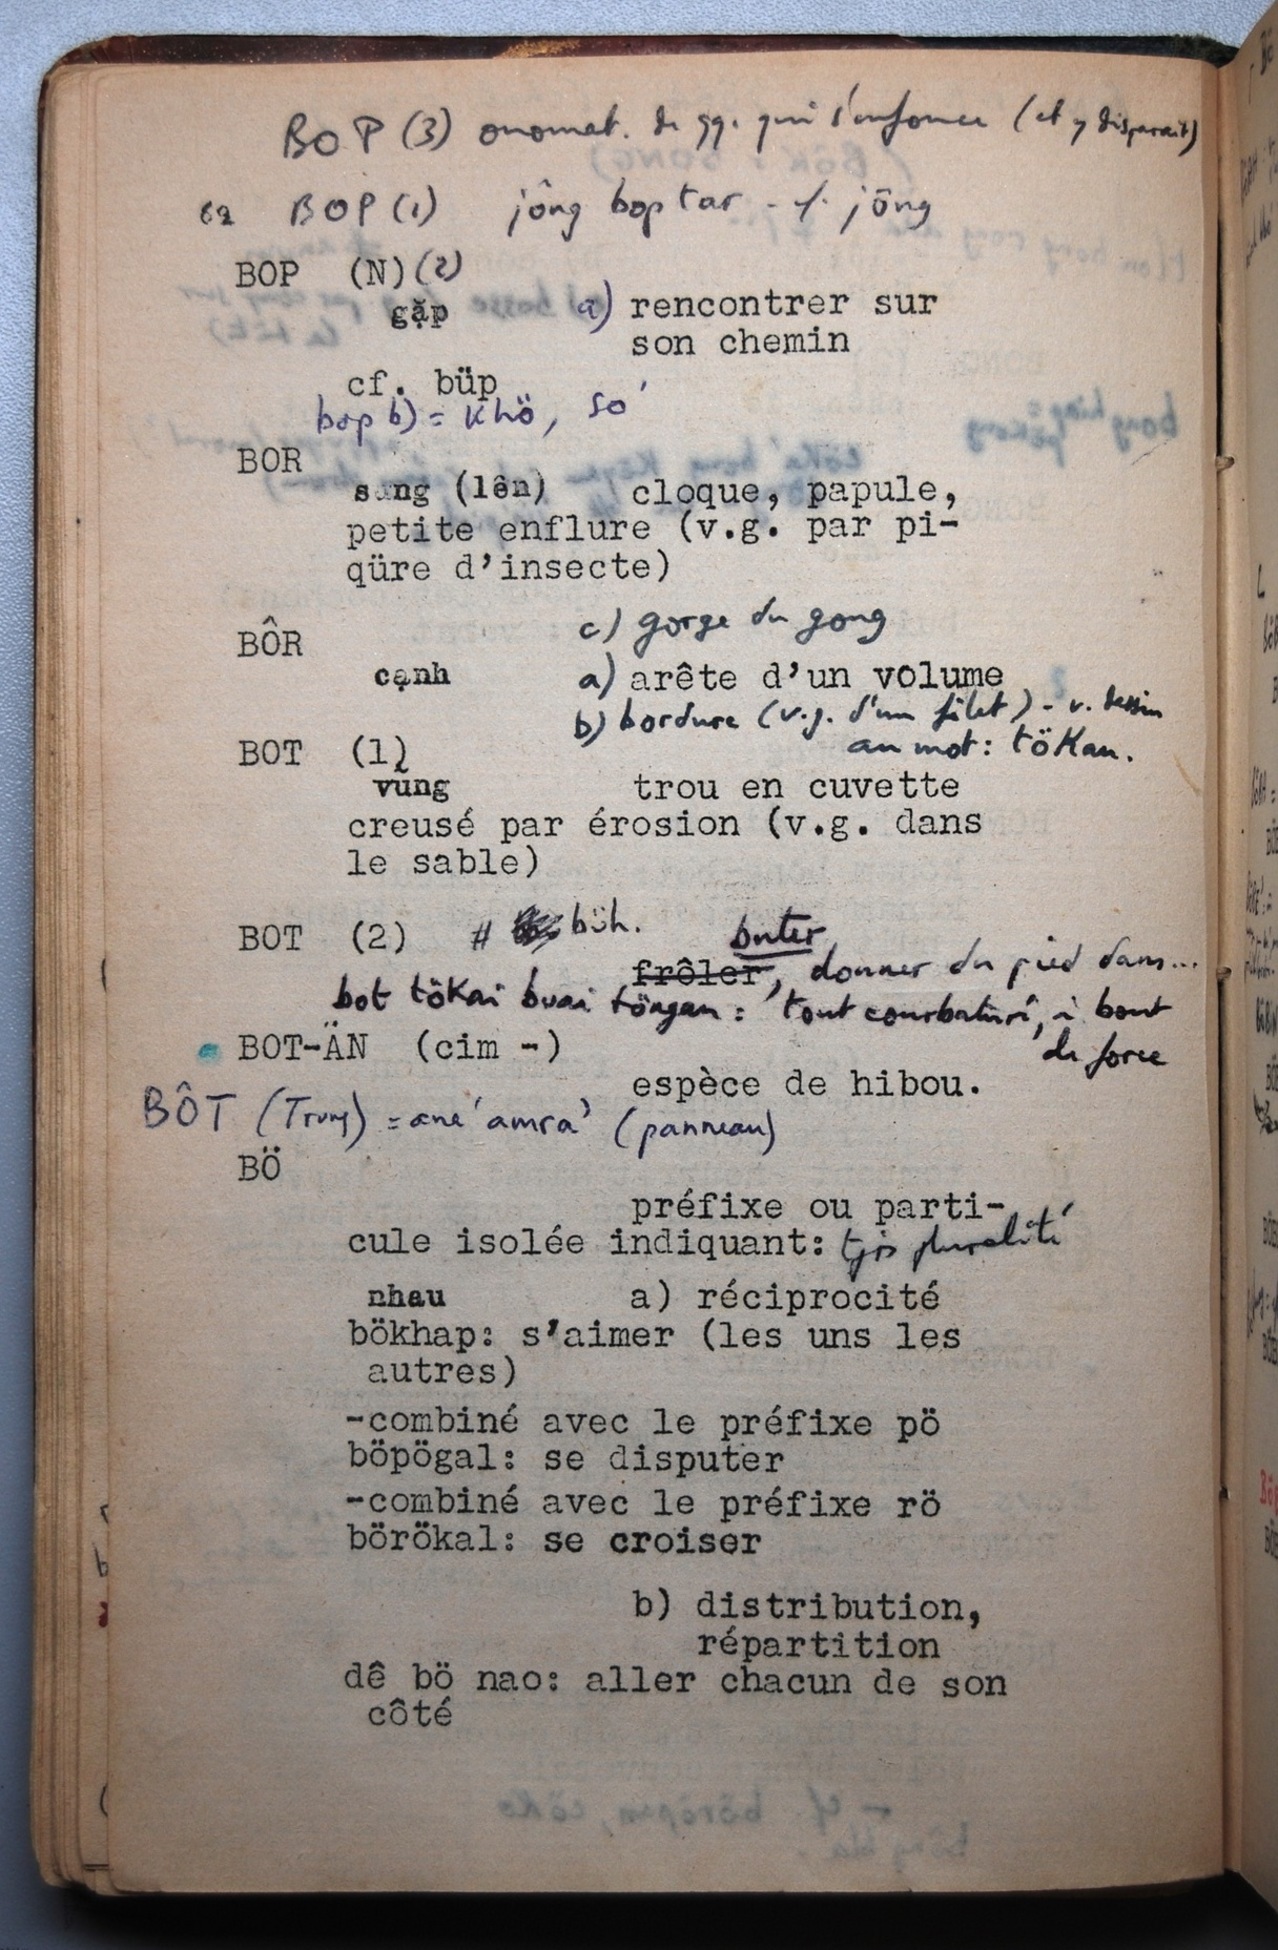 BOP (3) onomat. de qq. qui s'enfonce (et y disparait)
62 BOP (1) jông bop tar - cf. jông
BOP (N) (2)
gặp a) rencontrer sur
son chemin
cf. büp
bop b) = khö, so'
BOR
sưng (lên) cloque, papule,
petite enflure (v.g. par pi-
qüre d'insecte)
c) gorge du gong
BÔR
cạnh a) arête d'un volume
b) bordure (v.g. d'un filet) - v. dessin
au mot: tökan.
BOT (1)
vũng trou en cuvette
creusé par érosion (v.g. dans
le sable)
BOT (2) # böh. buter
frôler, donner du pied dans...
bot tökai buai töngan = tout courbaturé, à bout
de force
BOT-ÄN (cim -)
espèce de hibou.
BÔT (Trung) = (panneau)
BÖ
préfixe ou parti-
cule isolée indiquant: tjrs pluralité
nhau a) réciprocité
bökhap: s'aimer (les uns les
autres)
-combiné avec le préfixe pö
böpögal: se disputer
-combiné avec le préfixe rö
börökal: se croiser
b) distribution,
répartition
dê bö nao: aller chacun de son
côté